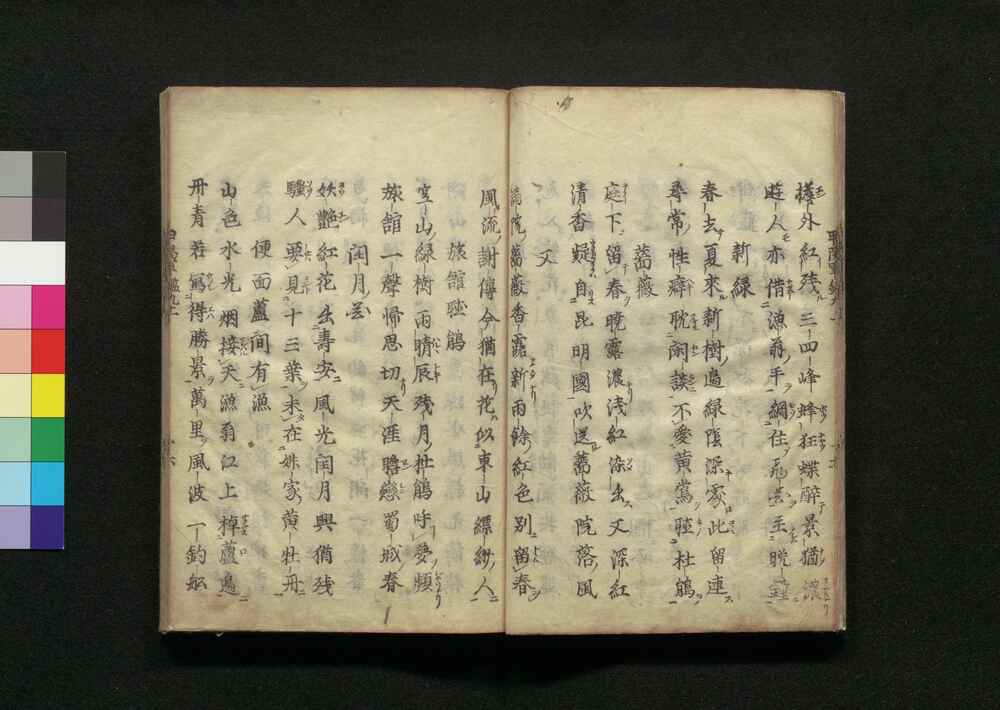 檐外紅殘三四峰蜂狂蝶醉景猶濃
遊人亦借漁翁手網住飛花至晚鐘
新綠
春去夏來新樹邊綠陰深處此留連
尋常性癖耽閑談不愛黃鶯聽杜鵑
薔薇
庭下留春曉露濃淺紅染出又深紅
清香疑自昆明國吹送薔薇院落風
又
滿院薔薇香露新雨餘紅色別留春
風流謝傅今猶在花似東山縹緲人
旅館聽鵑
空山綠樹雨晴辰殘月杜鵑呼夢頻
旅館一聲歸思切天涯瞻戀蜀城春
閏月花
妖艷紅花出壽安風光閏月興猶殘
騷人要見十三葉未在姝家黃牡丹
便面蘆間有漁
山色水光烟接天漁翁江上棹蘆邊
丹青若寫得勝景萬里風波一釣船